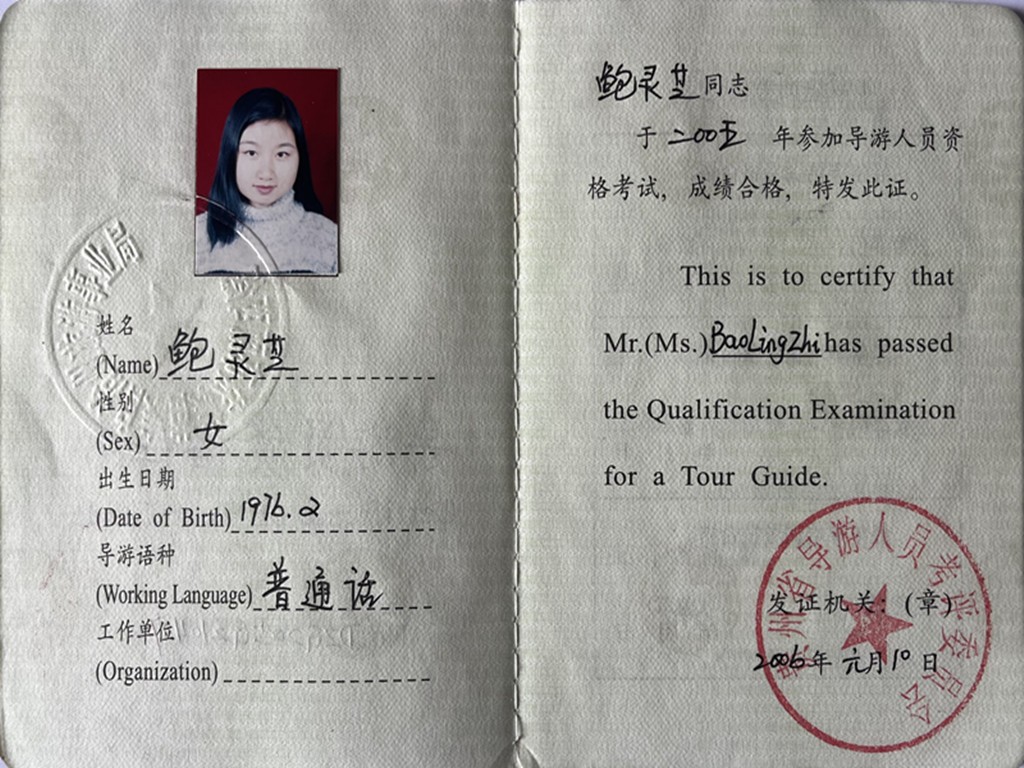 姓名
(Name) 鲍灵芝
性别
(Sex) 女
出生日期
(Date of Birth) 1976.2
导游语种
(Working Language) 普通话
工作单位
(Organization)
鲍灵芝同志
于 二00五 年参加导游人员资
格考试，成绩合格，特发此证。
This is to certify that
Mr.(Ms.) BaoLingZhi has passed
the Qualification Examination
for a Tour Guide.
州省导游人员考评委员会
发证机关：(章)
2006年 元月10日